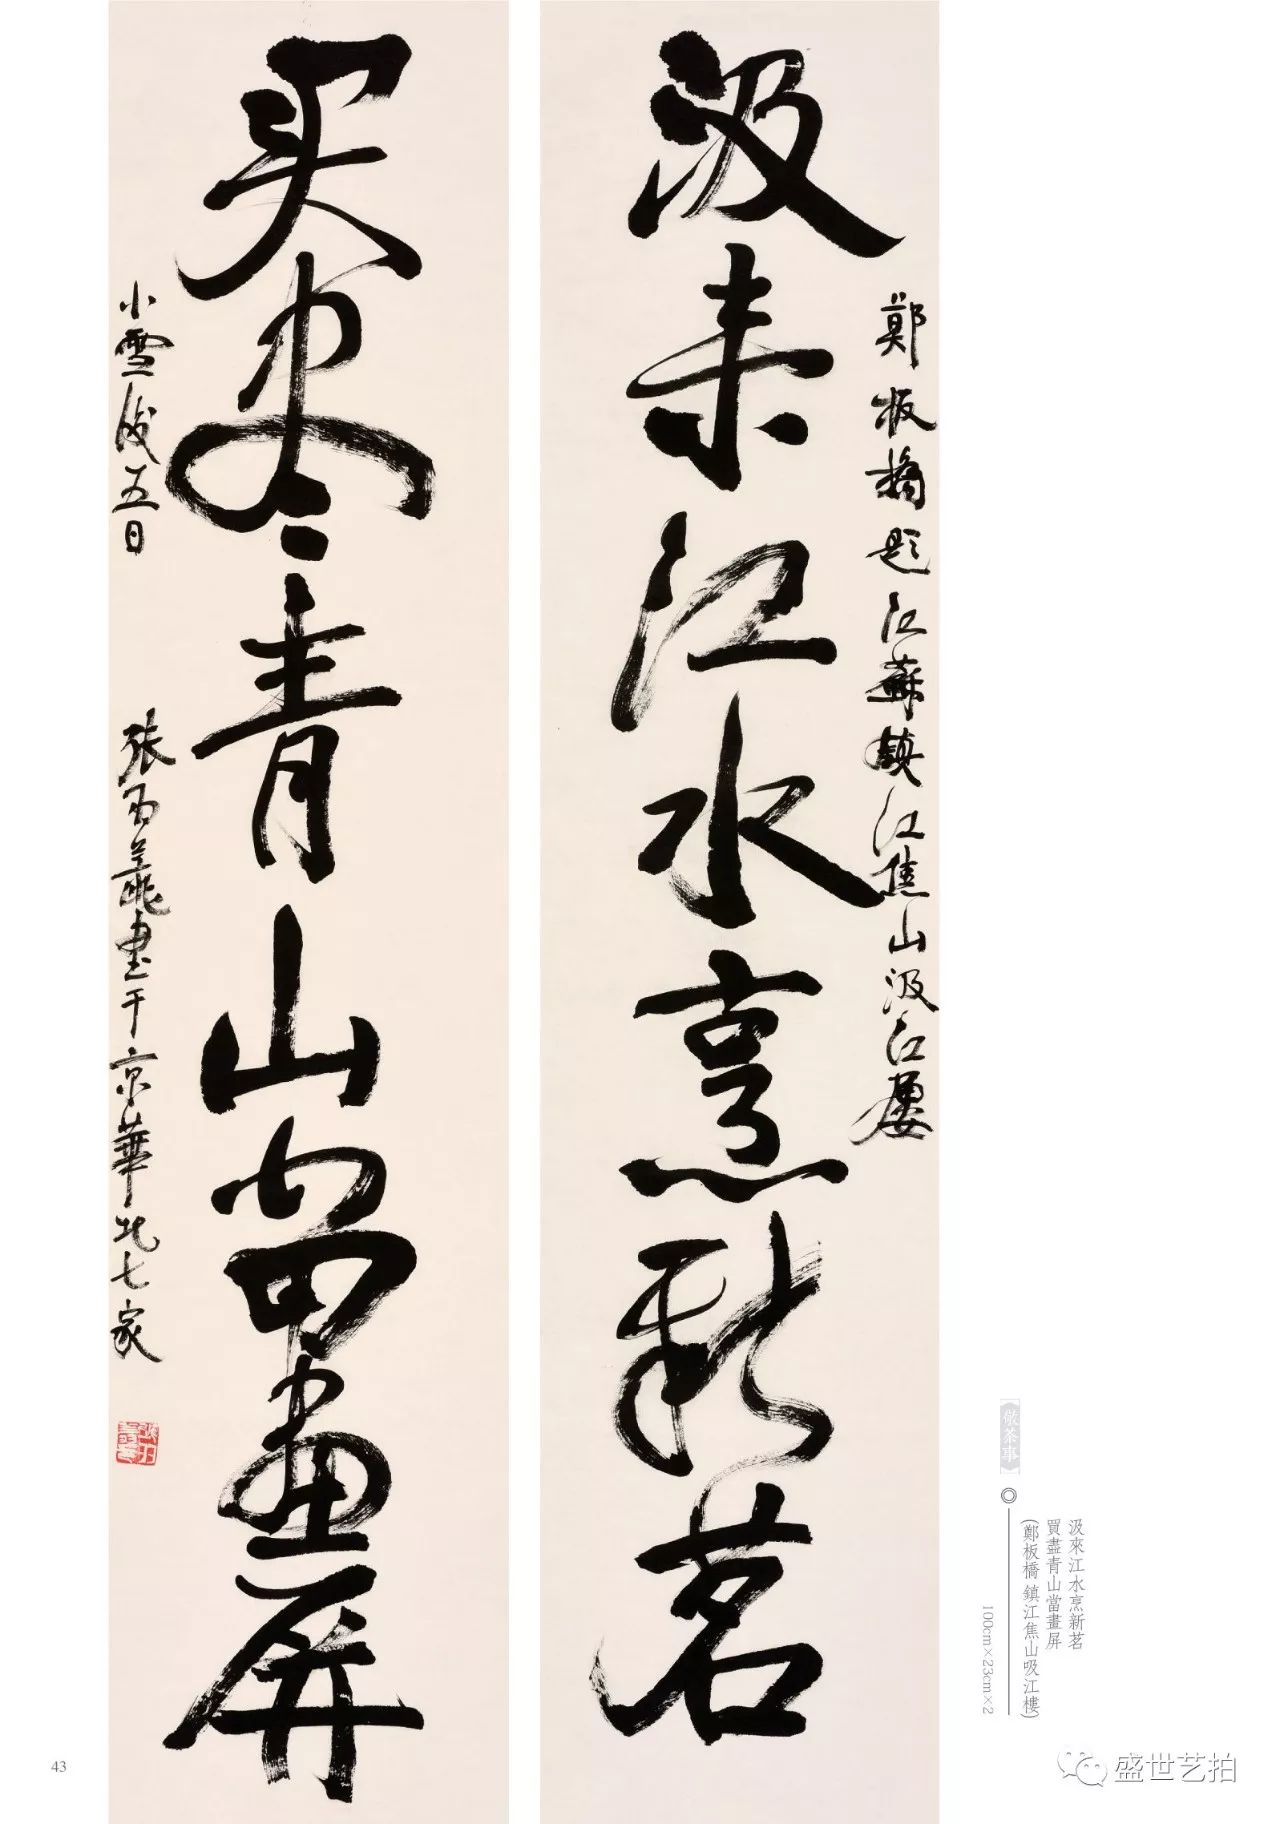 鄭板橋題江蘇鎮江焦山汲江樓
汲来江水烹新茗
买尽青山當畫屏
小雪後五日
張
書于京華北七家
儆茶事
汲來江水烹新茗
買盡青山當畫屏
(鄭板橋 鎮江焦山吸江樓)
100cm×23cm×2
43
盛世艺拍